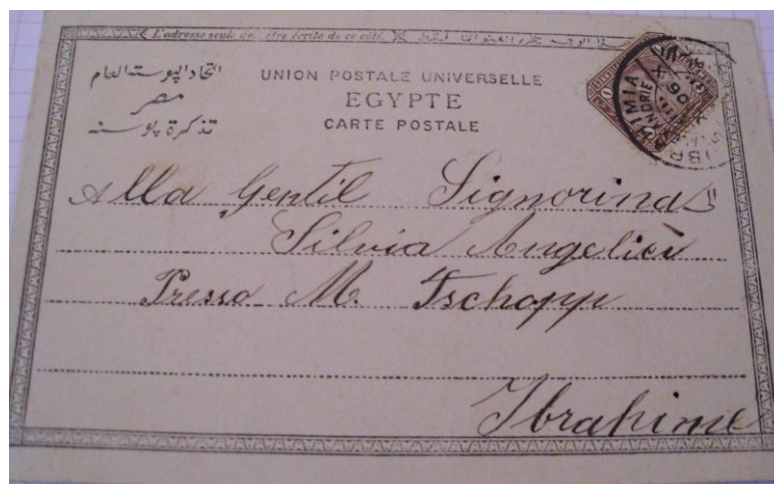 L'adresse seule doit être écrite de ce côté.
اتحاد البوستة العام
مصر
تذكرة بوسته
UNION POSTALE UNIVERSELLE
EGYPTE
CARTE POSTALE
IBRAHIMIA
X 06
Alla Gentil Signorina
Silvia Angelici
Presso M. Tschopp
Ibrahime